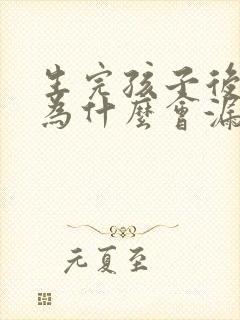 生完孩子後
為什麼會漏
元夏至